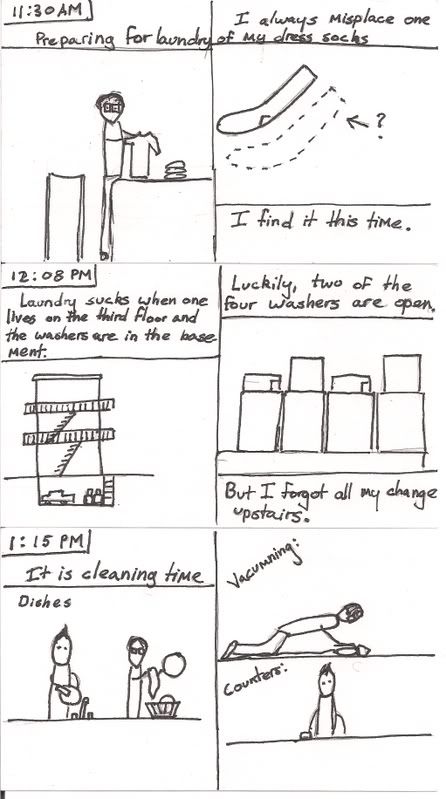 11:30 AM
Preparing for laundry
I always misplace one
of my dress socks
?
I find it this time.
12:08 PM
Laundry sucks when one
lives on the third floor and
the washers are in the base
ment.
Luckily, two of the
four washers are open.
But I forgot all my change
upstairs.
1:15 PM
It is cleaning time
Dishes
Vacumning:
Counters: